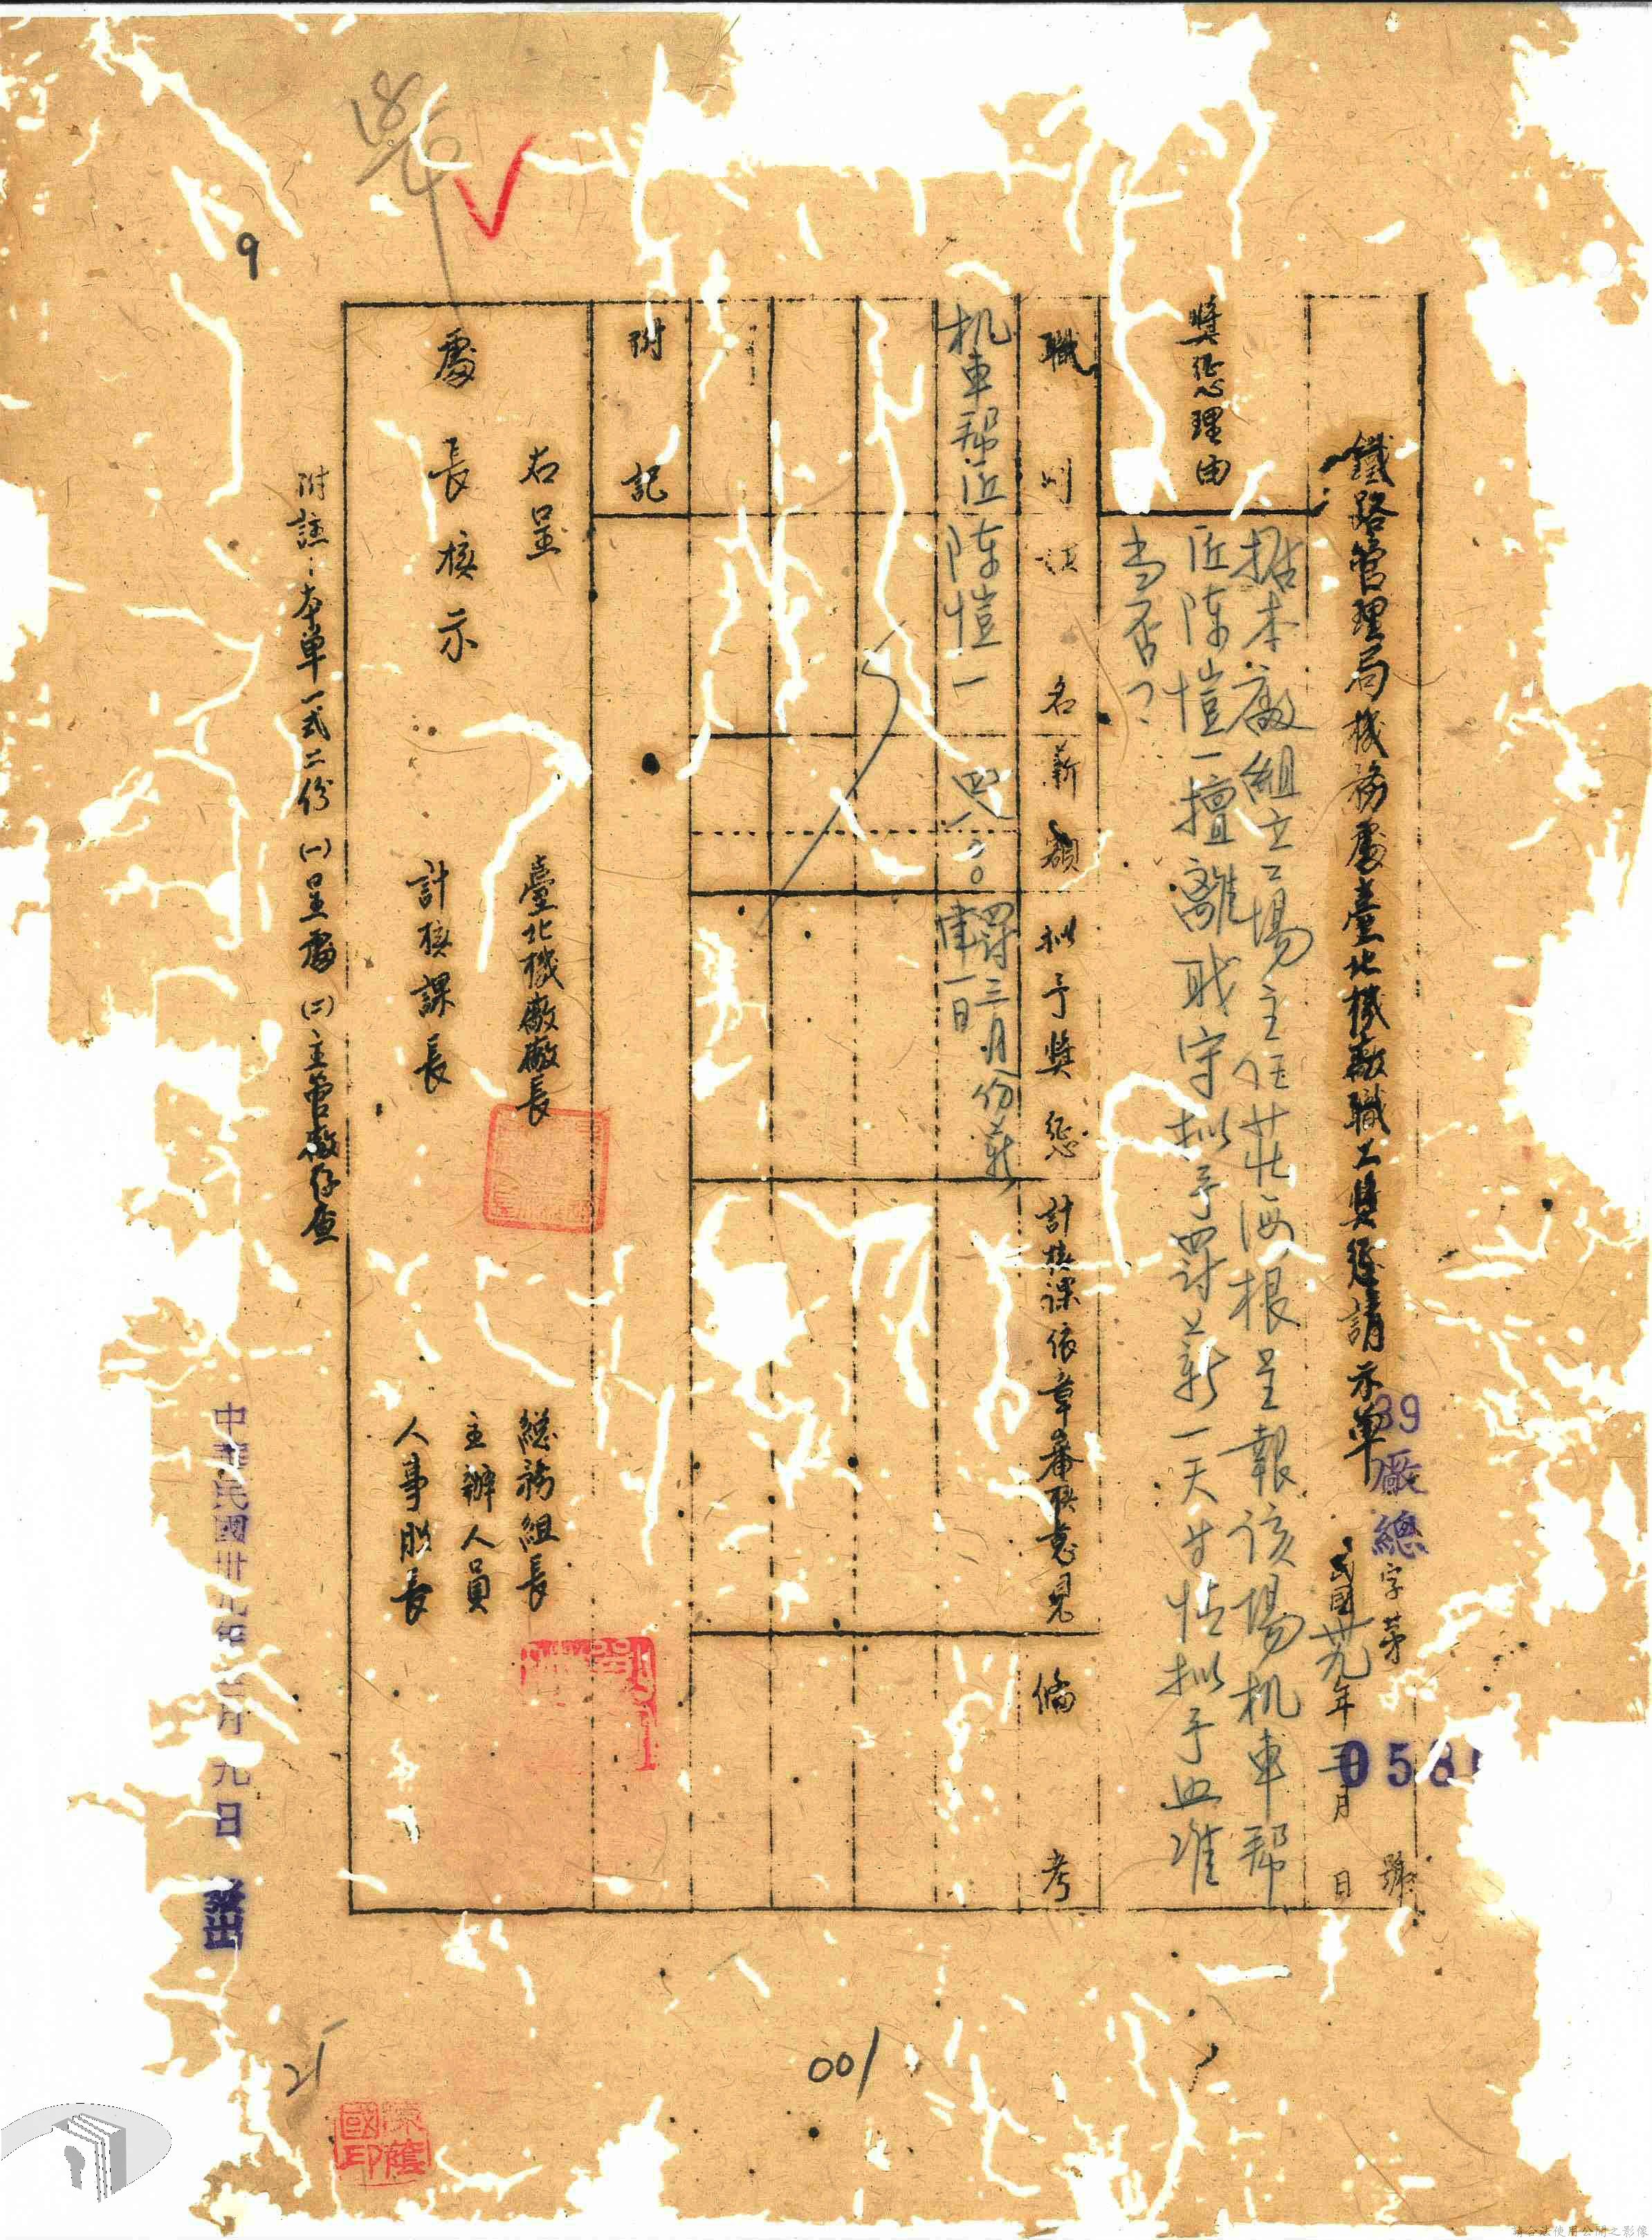 鐵路管理局機務處臺北機廠職工獎懲請示單
39廠總字第058號
民國卅九年三月 日
獎懲理由
據本廠組立工場主任莊海根呈報該場机車帮
匠陳愷一擅離職守拟予罰薪一天
拟予
當否?
職別 名
薪額
拟予獎懲
計核課依章審核意見
備考
机車帮匠陳愷一
罰三月份薪
一日
附記
右呈
處長核示
臺北機廠廠長
計核課長
總務組長
主辦人員
人事股長
附註:本單一式二份(一)呈處(二)主管廠存查
中華民國卅九年 月九日
9
001
21
陳蔭國印